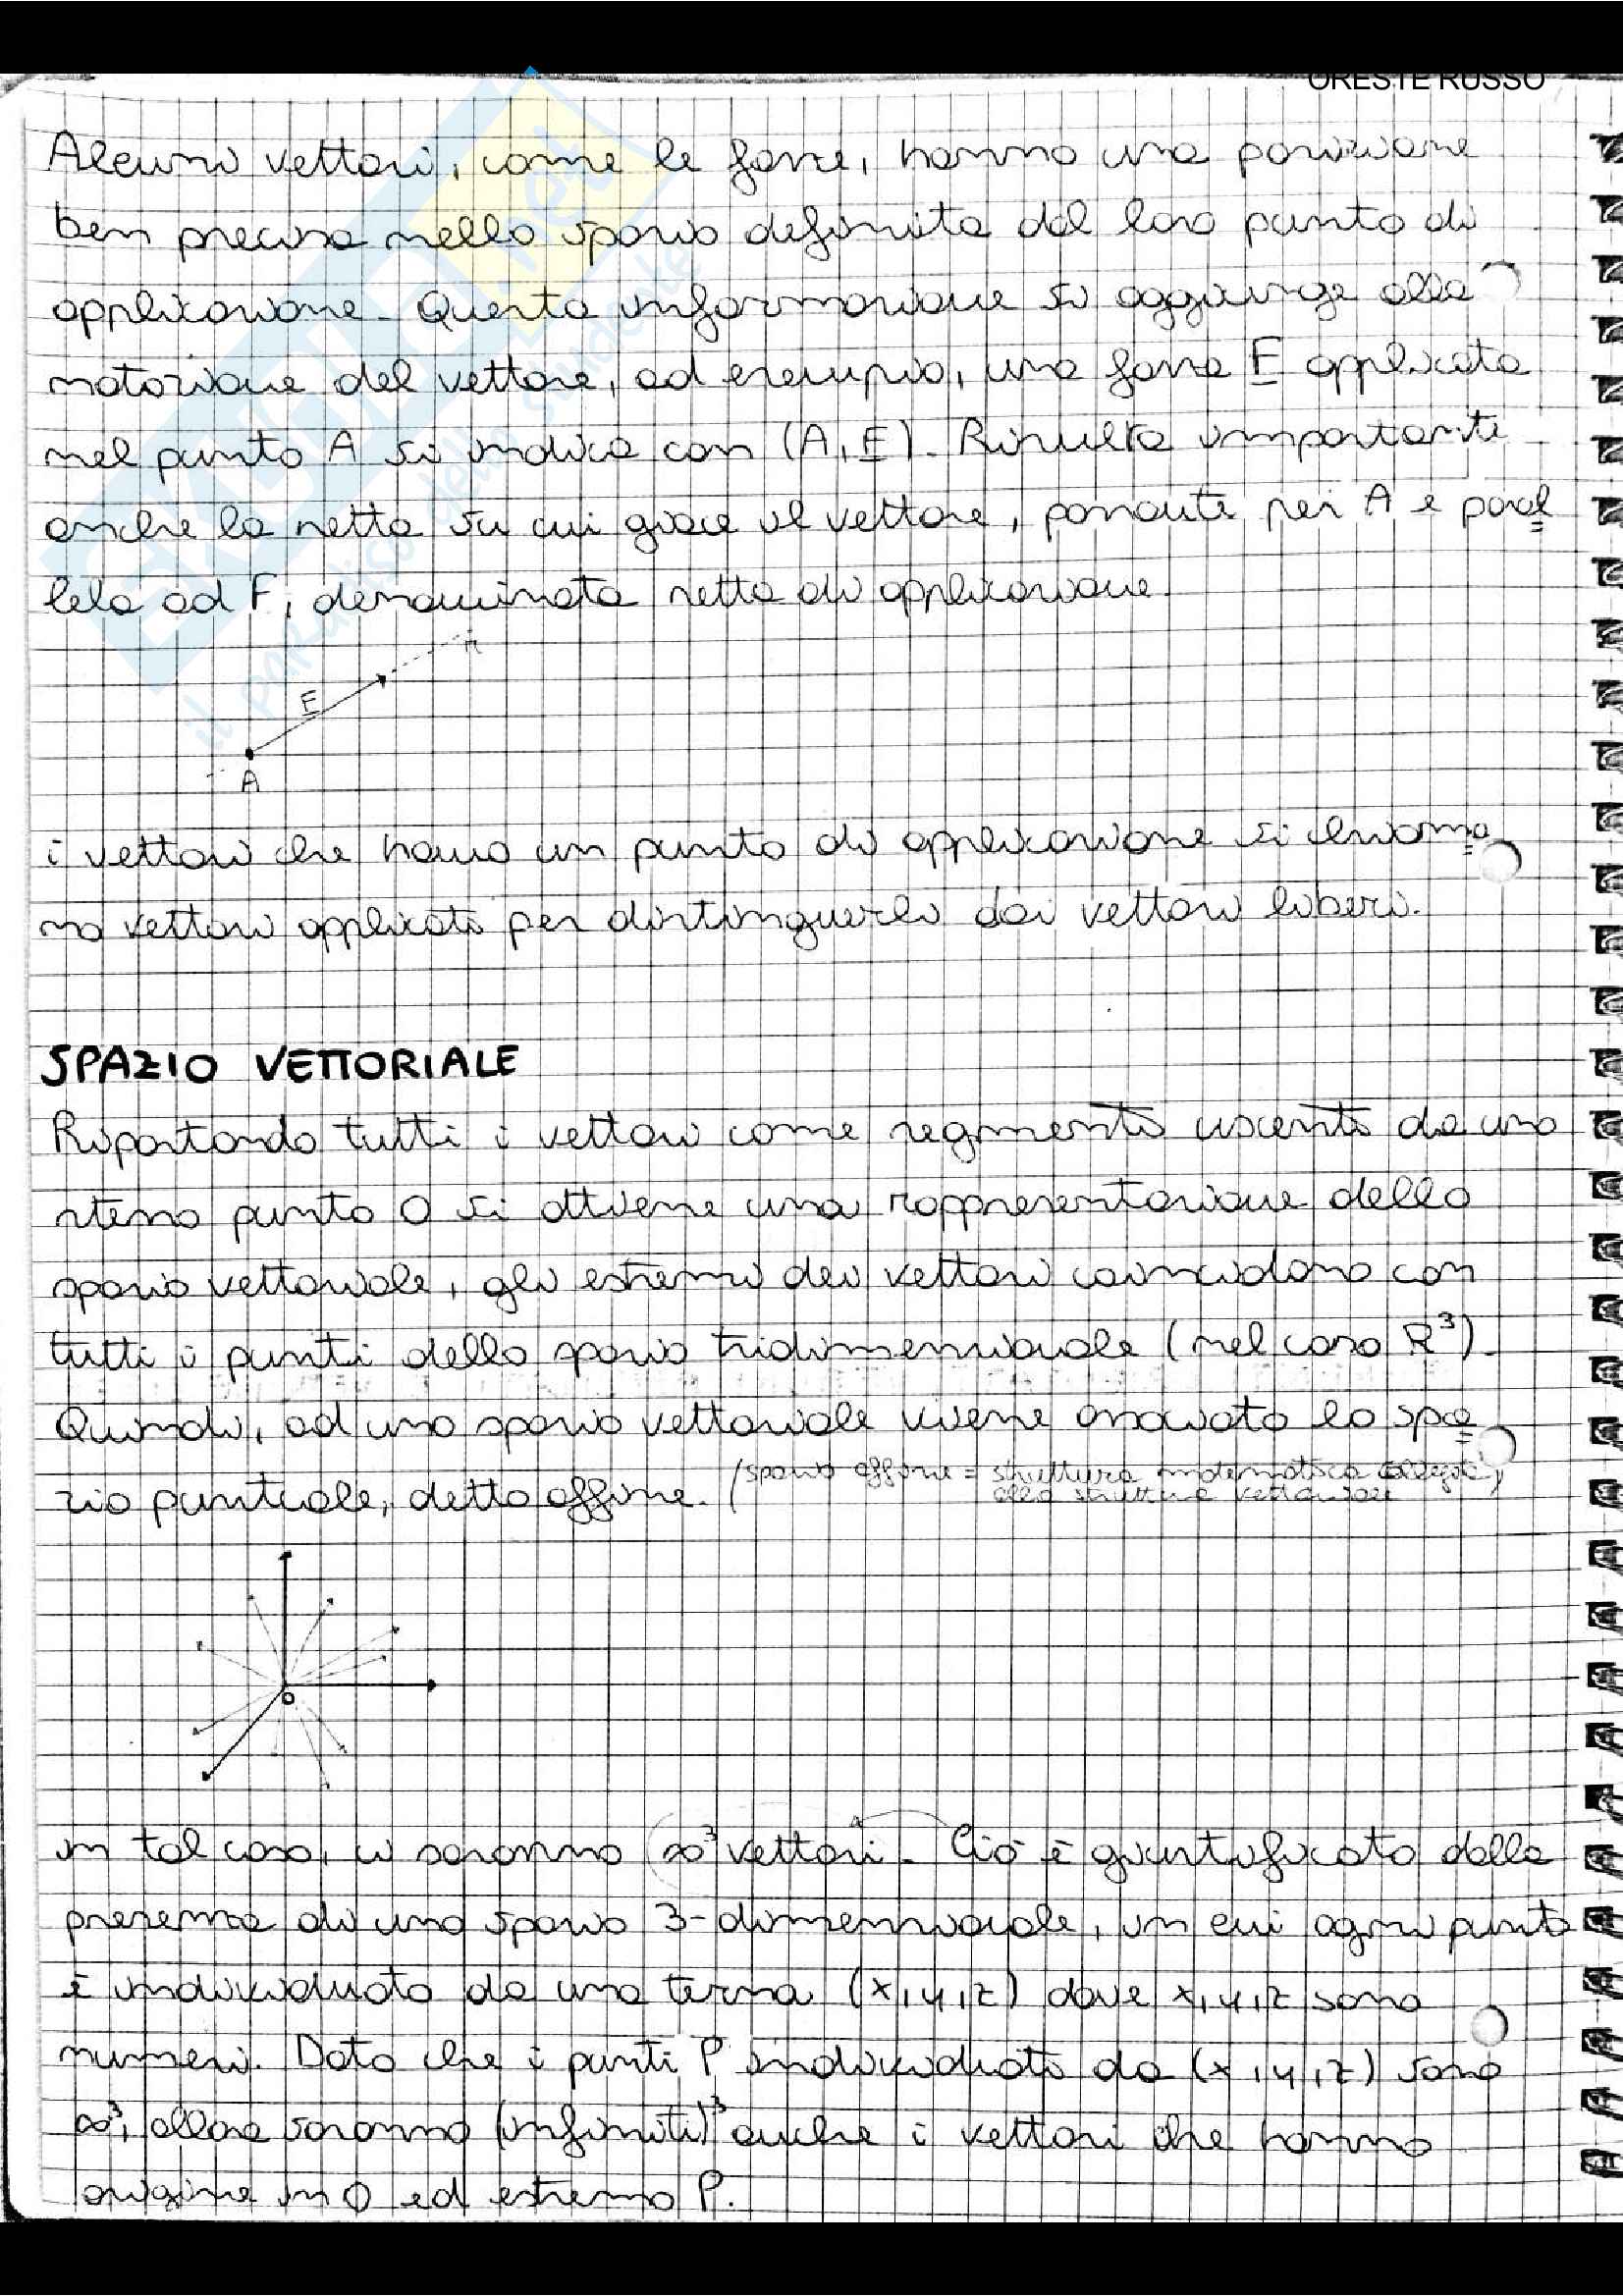 ORESTE RUSSO
Alcuni vettori, come le forze, hanno una posizione
ben precisa nello spazio definita dal loro punto di
applicazione. Questa informazione si aggiunge alla
notazione del vettore, ad esempio, una forza F applicata
nel punto A si indica con (A, F). Risulta importante
anche la retta su cui giace il vettore, passante per A e paral
lela ad F, denominata retta di applicazione.
r
F
A
i vettori che hanno un punto di applicazione si chiama
no vettori applicati per distinguerli dai vettori liberi.
SPAZIO VETTORIALE
Riportando tutti i vettori come segmenti uscenti da uno
stesso punto O si ottiene una rappresentazione dello
spazio vettoriale, gli estremi dei vettori coincidono con
tutti i punti dello spazio tridimensionale (nel caso R³).
Quindi, ad uno spazio vettoriale viene associato lo spa
zio puntuale, detto affine. (spazio affine = struttura matematica collegata
alla struttura vettoriale)
O
in tal caso, ci saranno ∞³ vettori. Ciò è giustificato dalla
presenza di uno spazio 3-dimensionale, in cui ogni punto
è individuato da una terna (x, y, z) dove x, y, z sono
numeri. Dato che i punti P individuati da (x, y, z) sono
∞³, allora saranno (infiniti)³ anche i vettori che hanno
origine in O ed estremo P.